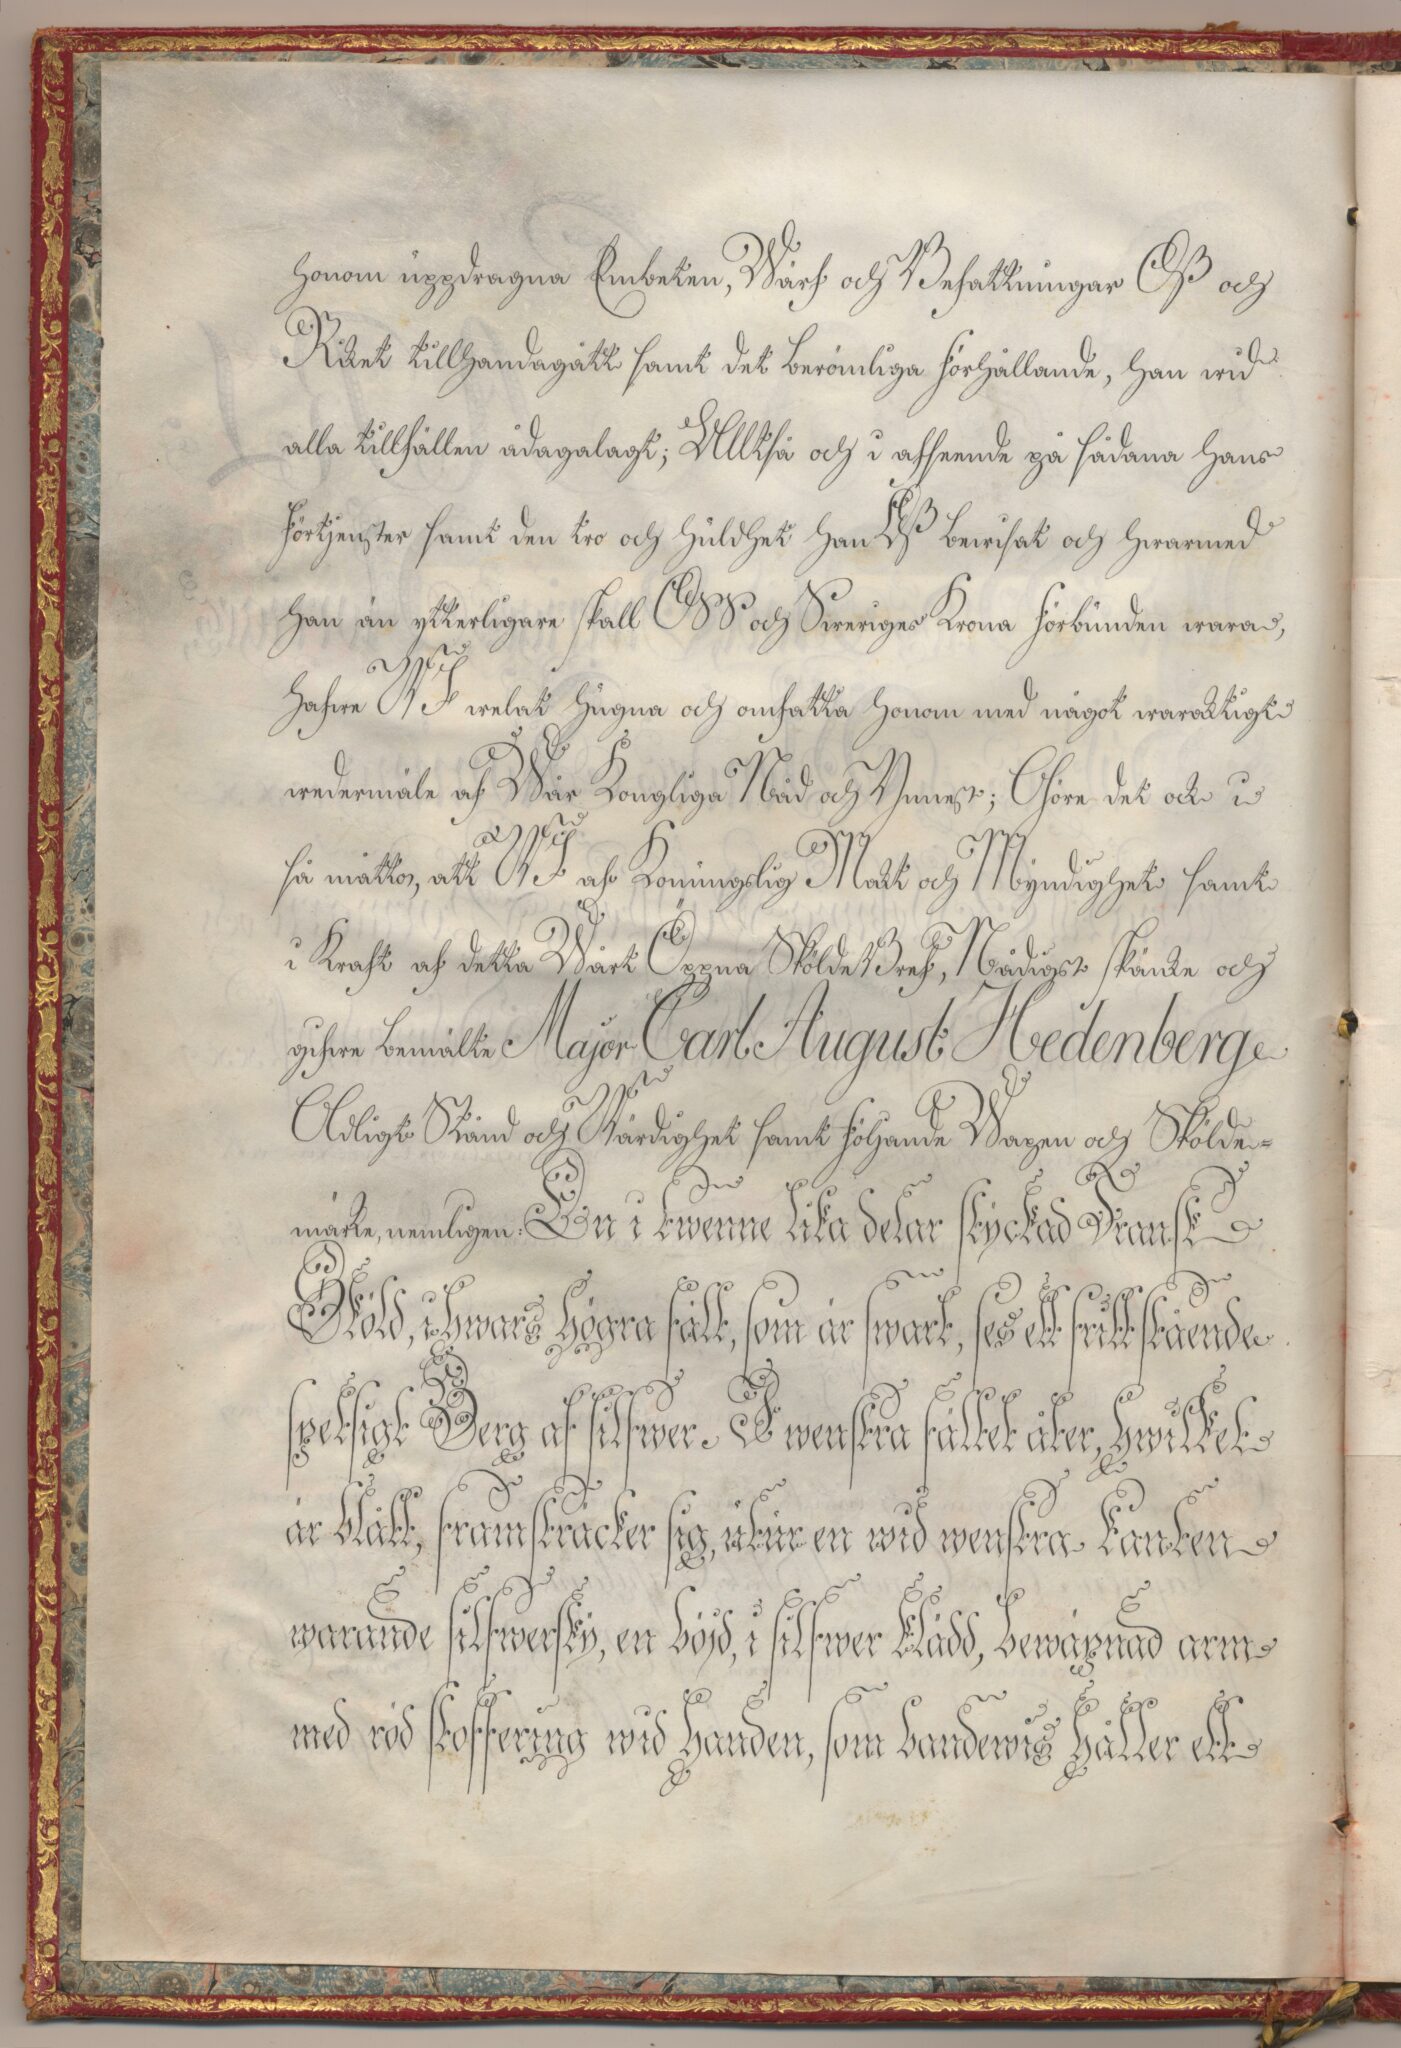 honom uppdragna Embeten, Wärf och Befattningar Oß och
Riket tillhandagått samt det berömliga förhållande, han wid
alla tillfällen ådagalagt; Alltså och i afseende på sådana hans
förtjenster samt den tro och huldhet han Oß bewisat och hwarmed
han än ytterligare skall OSS och Sweriges Krona förbunden wara,
hafwe WJ welat hugna och omfatta honom med något waracktigt
wedermäle af Wår Kongliga Nåd och Ynnest; Giöre det ock i
så måtto, att WJ af Konungslig Mackt och Myndighet samt
i Kraft af detta Wårt Öppna SköldeBref, Nådigst skänke och
gifwe bemälte Major Carl August Hedenberg
Adligt Stånd och Wärdighet samt följande Wapen och Skölde-
märke, nemligen: En i twenne lika delar styckad Fransk
Sköld, i hwars högra fält, som är swart, ses ett fritt stående
spetsigt Berg af silfwer. I wenstra fältet åter, hwilket
är blått, framsträcker sig, utur en wid wenstra kanten
warande silfwersky, en böjd, i silfwer klädd, bewäpnad arm
med röd stoffering wid handen, som bandewis håller ett